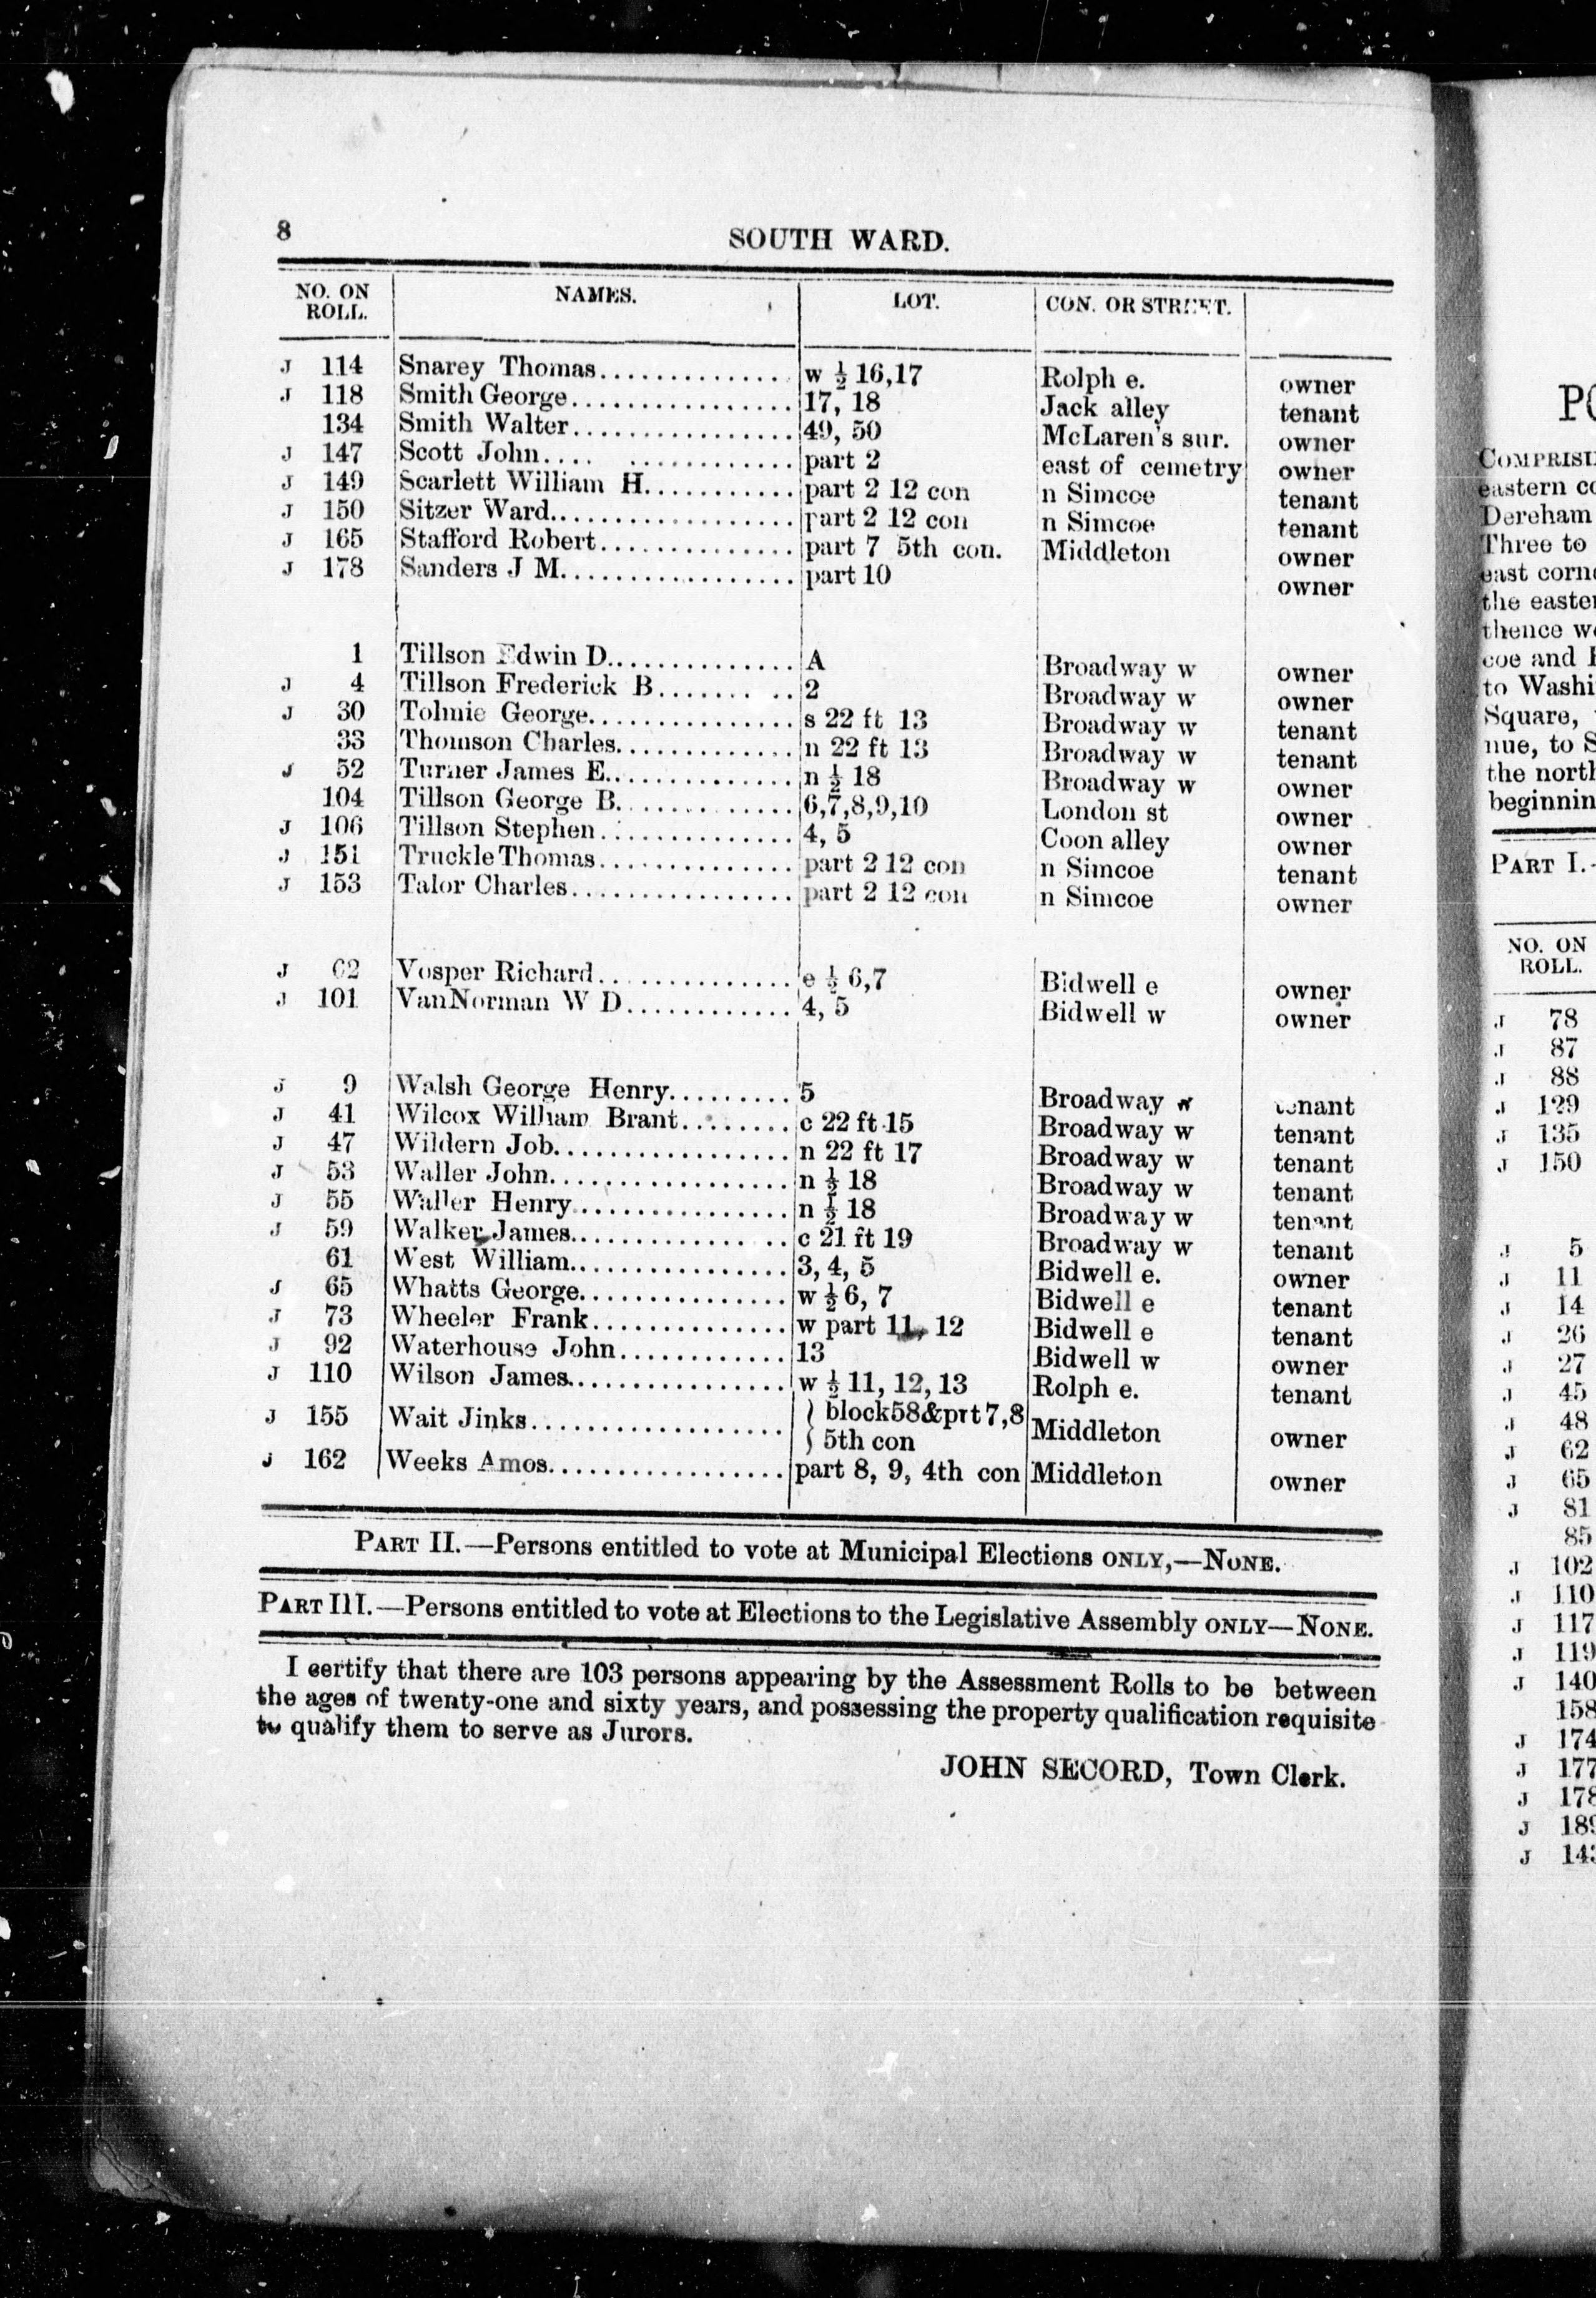 8
SOUTH WARD.
NO. ON ROLL. NAMES. LOT. CON. OR STREET.
J 114 Snarey Thomas.............. w ½ 16,17 Rolph e. owner
J 118 Smith George................ 17, 18 Jack alley tenant
134 Smith Walter................ 49, 50 McLaren's sur. owner
J 147 Scott John.... ............ part 2 east of cemetry owner
J 149 Scarlett William H........... part 2 12 con n Simcoe tenant
J 150 Sitzer Ward.................. part 2 12 con n Simcoe tenant
J 165 Stafford Robert.............. part 7 5th con. Middleton owner
J 178 Sanders J M................. part 10 owner
1 Tillson Edwin D.............. A Broadway w owner
J 4 Tillson Frederick B.......... 2 Broadway w owner
J 30 Tolmie George............... s 22 ft 13 Broadway w tenant
33 Thomson Charles............. n 22 ft 13 Broadway w tenant
J 52 Turner James E.............. n ½ 18 Broadway w owner
104 Tillson George B............. 6,7,8,9,10 London st owner
J 106 Tillson Stephen.............. 4, 5 Coon alley owner
J 151 Truckle Thomas.............. part 2 12 con n Simcoe tenant
J 153 Talor Charles................ part 2 12 con n Simcoe owner
J 62 Vosper Richard.............. e ½ 6,7 Bidwell e owner
J 101 VanNorman W D............ 4, 5 Bidwell w owner
J 9 Walsh George Henry......... 5 Broadway w tenant
J 41 Wilcox William Brant........ c 22 ft 15 Broadway w tenant
J 47 Wildern Job................. n 22 ft 17 Broadway w tenant
J 53 Waller John.................. n ½ 18 Broadway w tenant
J 55 Waller Henry................ n ½ 18 Broadway w tenant
J 59 Walker James................ c 21 ft 19 Broadway w tenant
61 West William................ 3, 4, 5 Bidwell e. owner
J 65 Whatts George............... w ½ 6, 7 Bidwell e tenant
J 73 Wheeler Frank.............. w part 11, 12 Bidwell e tenant
J 92 Waterhouse John............ 13 Bidwell w owner
J 110 Wilson James................ w ½ 11, 12, 13 Rolph e. tenant
J 155 Wait Jinks.................. } block58&prt 7,8 Middleton owner
} 5th con
J 162 Weeks Amos................. part 8, 9, 4th con Middleton owner
PART II.—Persons entitled to vote at Municipal Elections ONLY,—NONE.
PART III.—Persons entitled to vote at Elections to the Legislative Assembly ONLY—NONE.
I certify that there are 103 persons appearing by the Assessment Rolls to be between
the ages of twenty-one and sixty years, and possessing the property qualification requisite
to qualify them to serve as Jurors.
JOHN SECORD, Town Clerk.
PO
COMPRISI
eastern co
Dereham
Three to
east corne
the easter
thence we
coe and
to Washi
Square,
nue, to S
the north
beginnin
PART I.
NO. ON
ROLL.
J 78
J 87
J 88
J 129
J 135
J 150
J 5
J 11
J 14
J 26
J 27
J 45
J 48
J 62
J 65
J 81
85
J 102
J 110
J 117
J 119
J 140
158
J 174
J 177
J 178
J 189
J 143